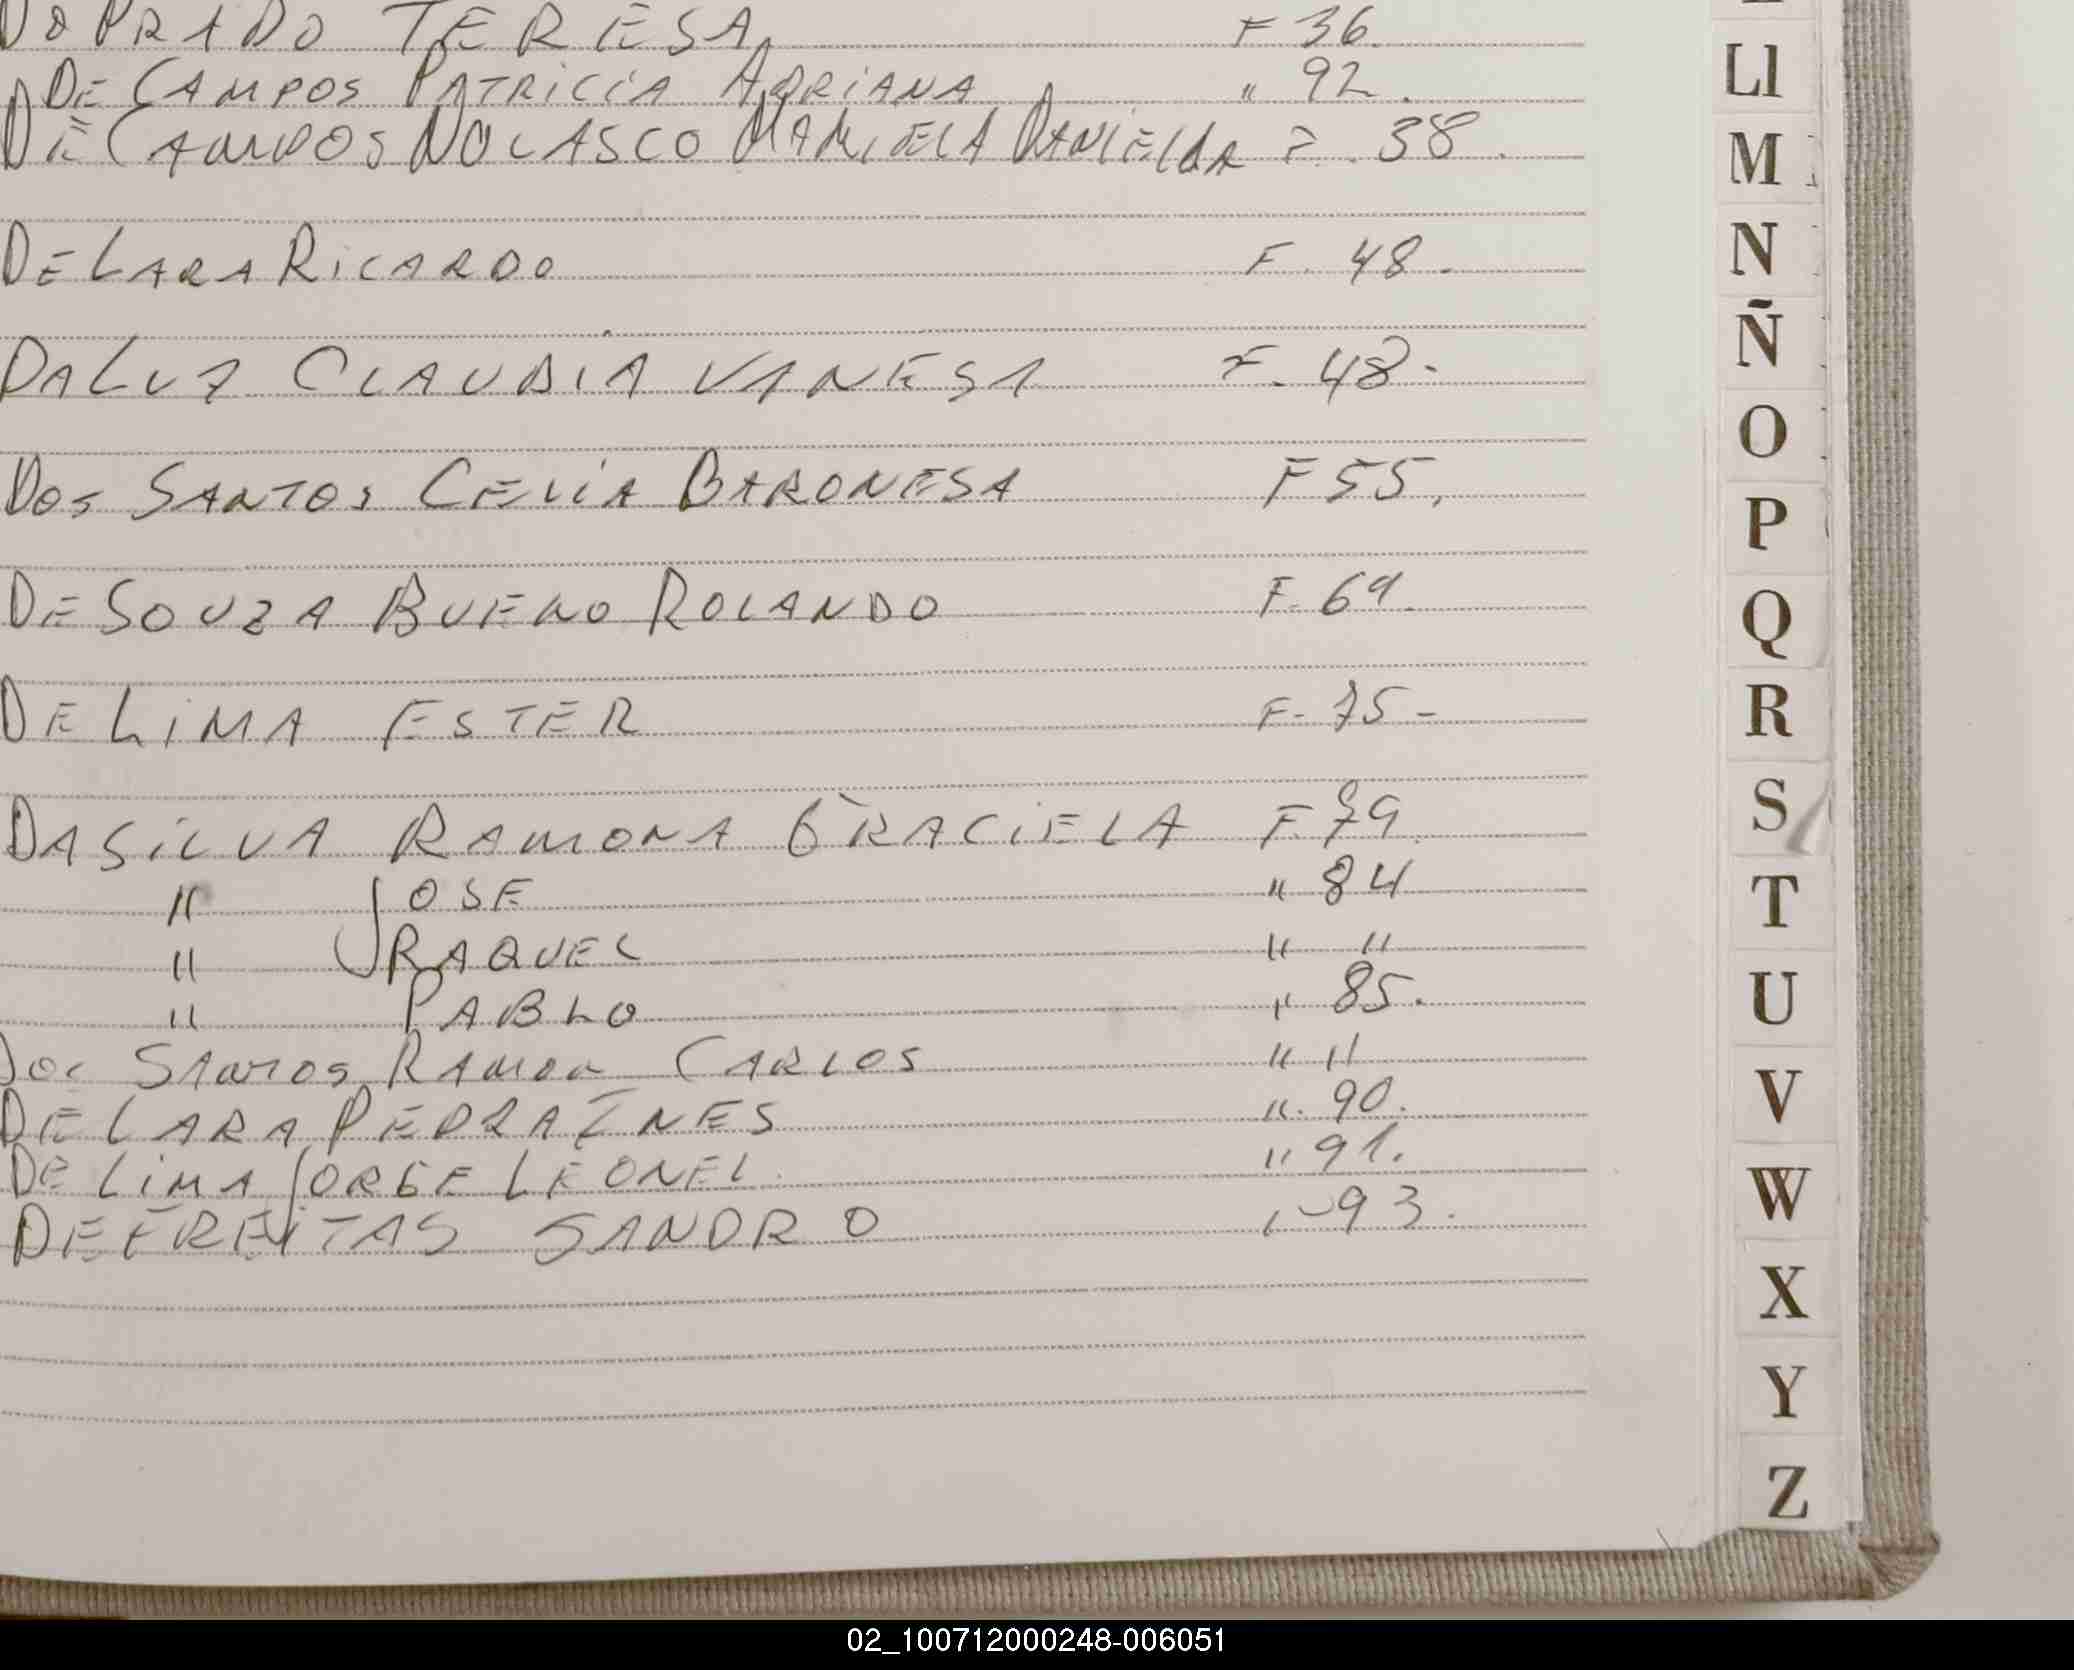 DO PRADO TERESA F 36.
DE CAMPOS PATRICIA ADRIANA " 92.
DE CAMPOS NOLASCO MARICELA DANIELA F. 38.
DE LARA RICARDO F. 48.
DA LUZ CLAUDIA VANESA F. 48.
DOS SANTOS CELIA BARONESA F 55.
DE SOUZA BUENO ROLANDO F. 69.
DE LIMA ESTER F. 75-
DA SILVA RAMONA GRACIELA F. 79.
" JOSE " 84
" RAQUEL " "
" PABLO " 85.
DOS SANTOS RAMON CARLOS " "
DE LARA PEDRA INES " 90.
DE LIMA JORGE LEONEL " 91.
DE FREITAS SANDRO " 93.
Ll
M
N
Ñ
O
P
Q
R
S
T
U
V
W
X
Y
Z
02_100712000248-006051